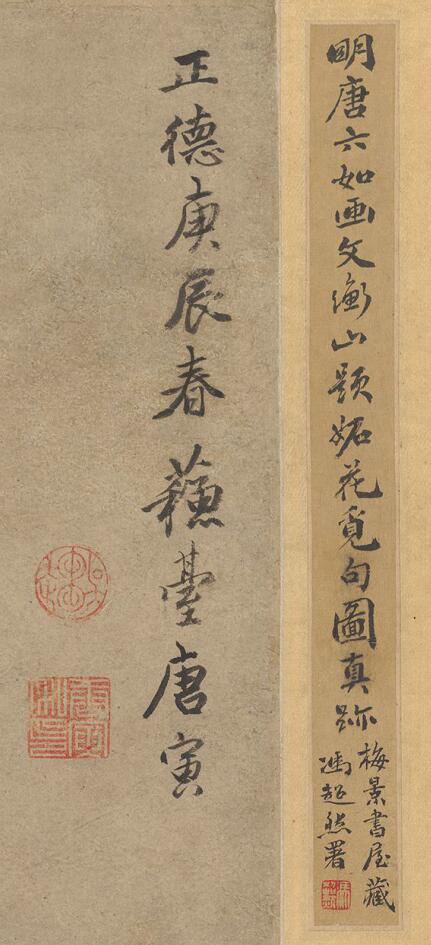 明唐六如画文衡山題妬花覓句圖真跡
梅景書屋藏
馮超然署
正德庚辰春蘓臺唐寅